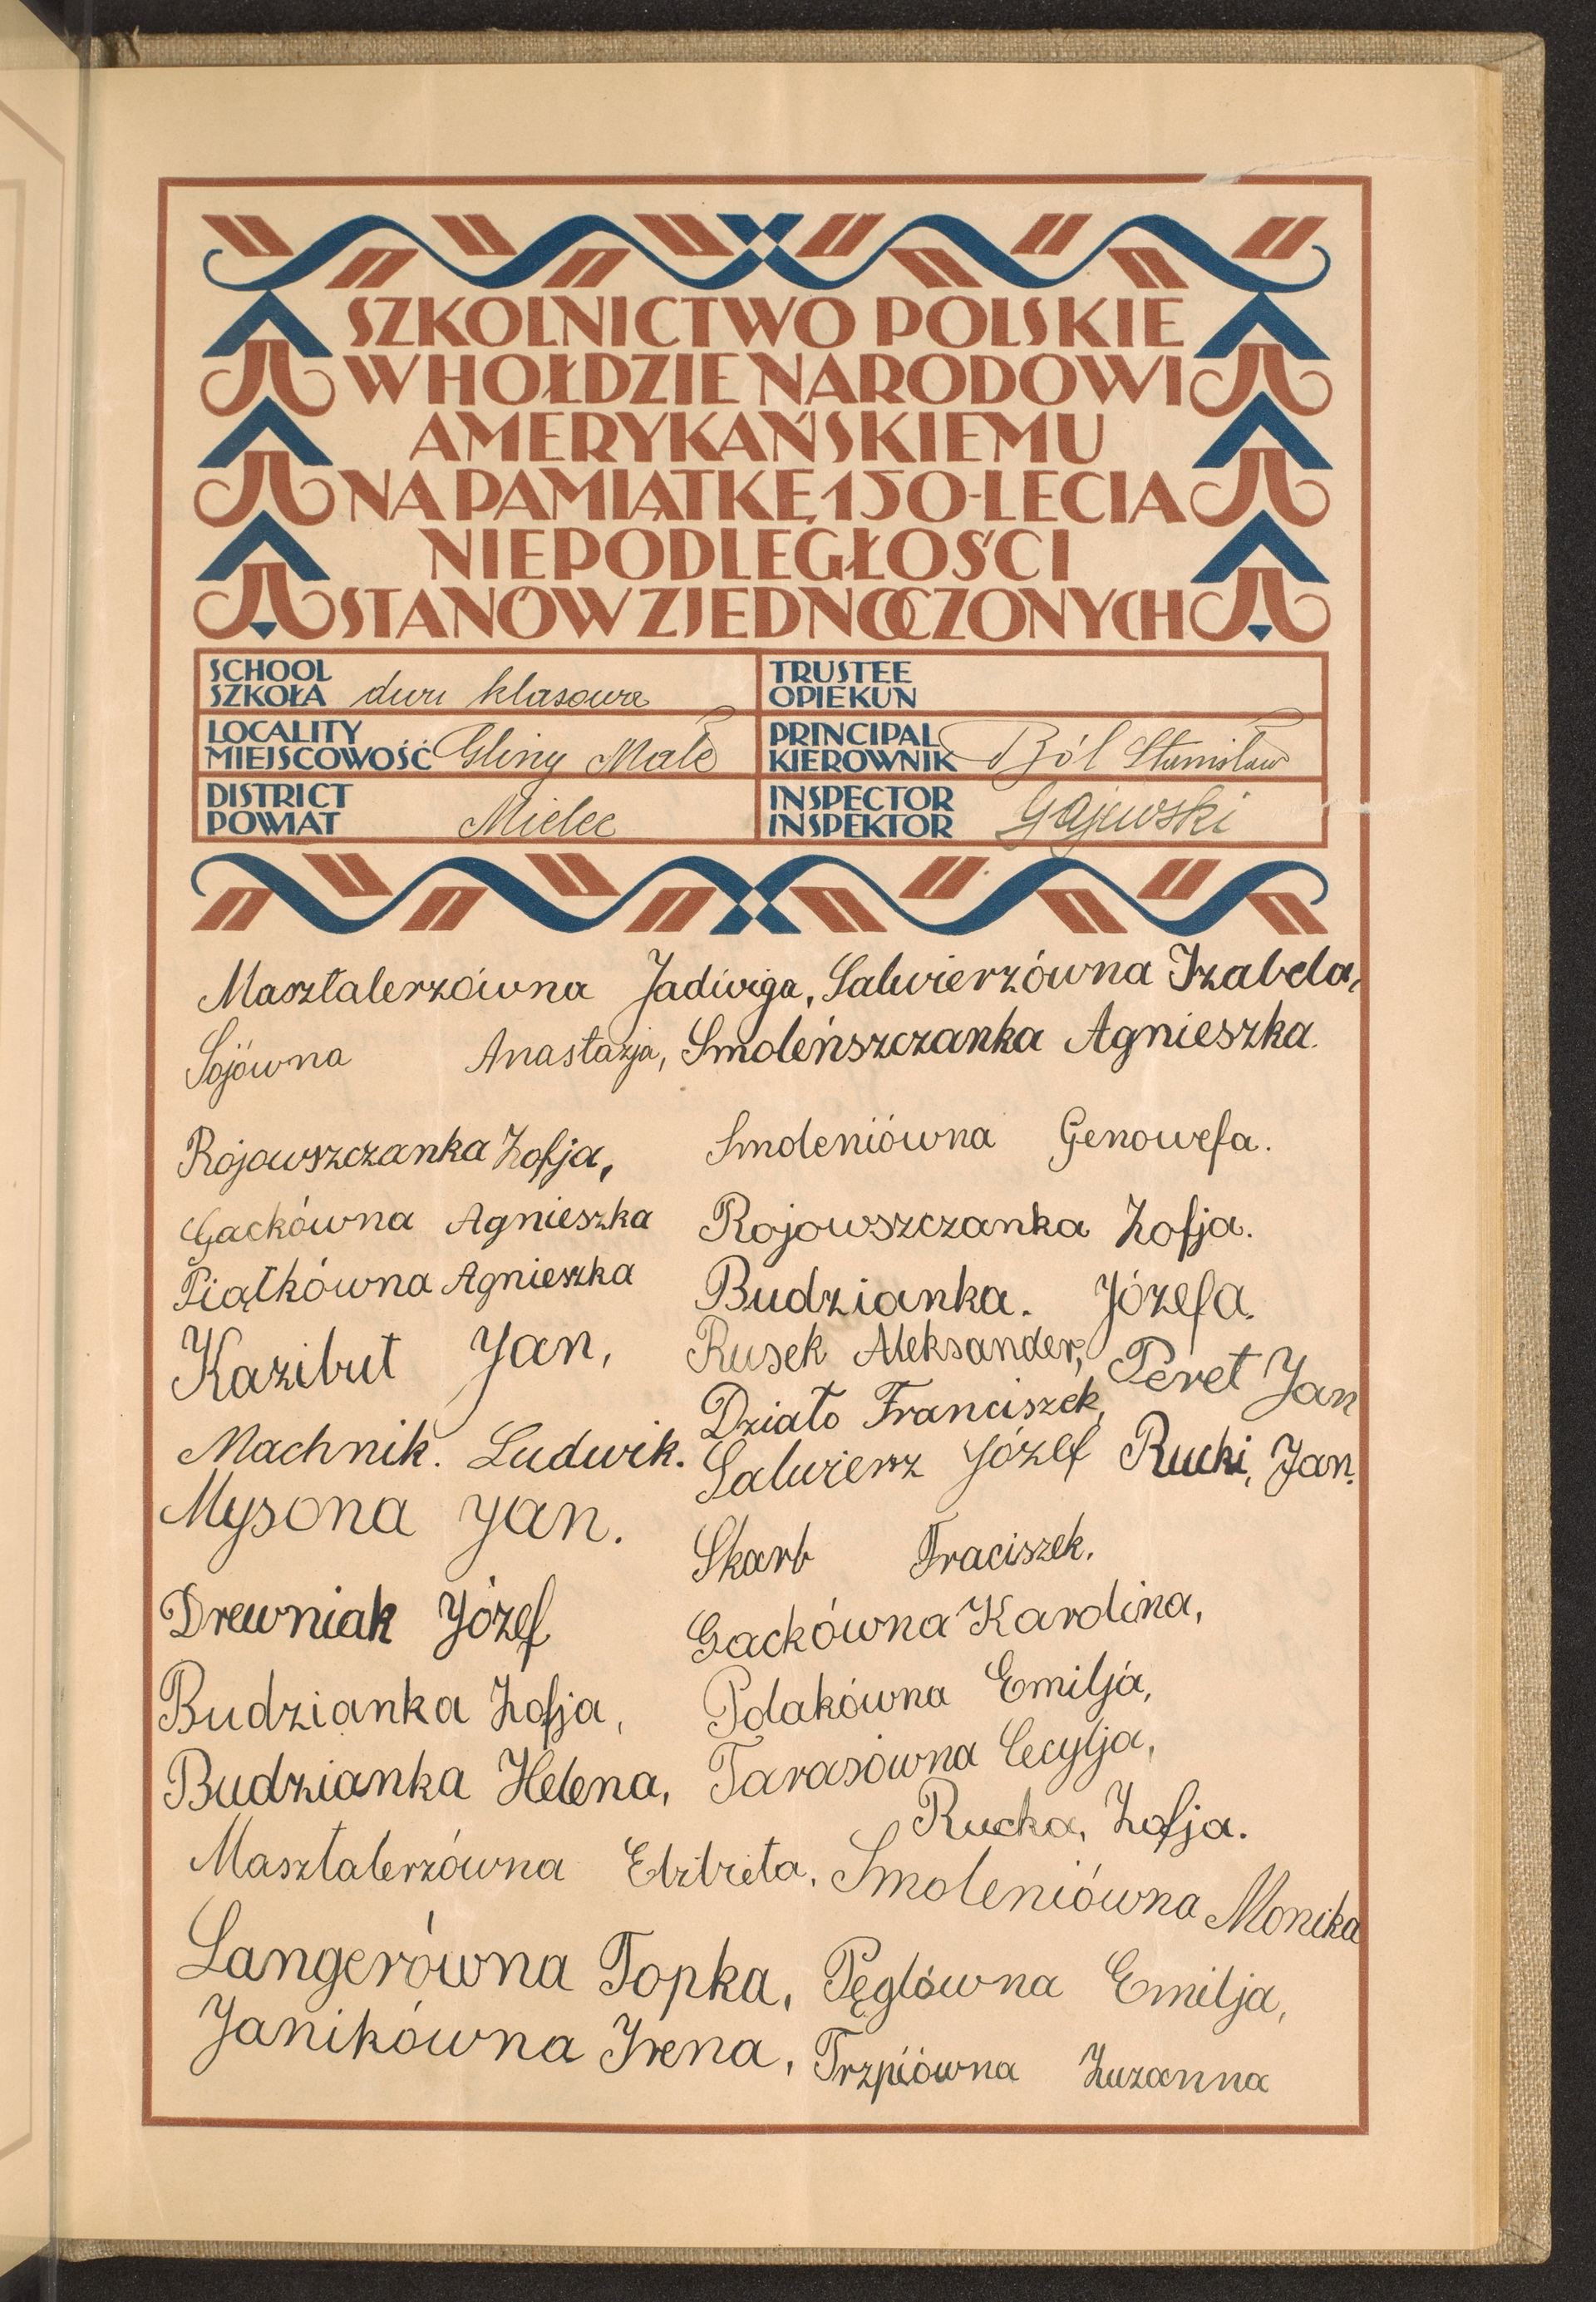 SZKOLNICTWO POLSKIE
W HOŁDZIE NARODOWI
AMERYKAŃSKIEMU
NA PAMIĄTKĘ 150-LECIA
NIEPODLEGŁOŚCI
STANÓW ZJEDNOCZONYCH
SCHOOL
SZKOŁA dwu klasowa
TRUSTEE
OPIEKUN
LOCALITY
MIEJSCOWOŚĆ Gliny Małe
PRINCIPAL
KIEROWNIK Ból Stanisław
DISTRICT
POWIAT Mielec
INSPECTOR
INSPEKTOR Gajewski
Masztalerzówna Jadwiga, Salwierzówna Izabela,
Sójówna Anastazja, Smoleńszczanka Agnieszka.
Rojowszczanka Zofja, Smoleniówna Genowefa.
Gackówna Agnieszka Rojowszczanka Zofja.
Piątkówna Agnieszka Budzianka. Józefa.
Kazibut Jan, Rusek Aleksander, Peret Jan
Działo Franciszek,
Machnik. Ludwik. Salwierz Józef Rucki, Jan.
Mysona Jan. Skarb Fraciszek.
Drewniak Józef Gackówna Karolina,
Budzianka Zofja, Polakówna Emilja,
Budzianka Helena, Tarasówna Cecylja,
Rucka, Zofja.
Masztalerzówna Elżbieta. Smoleniówna Monika
Langerówna Topka, Pęglówna Emilja,
Janikówna Irena, Trzpiówna Zuzanna